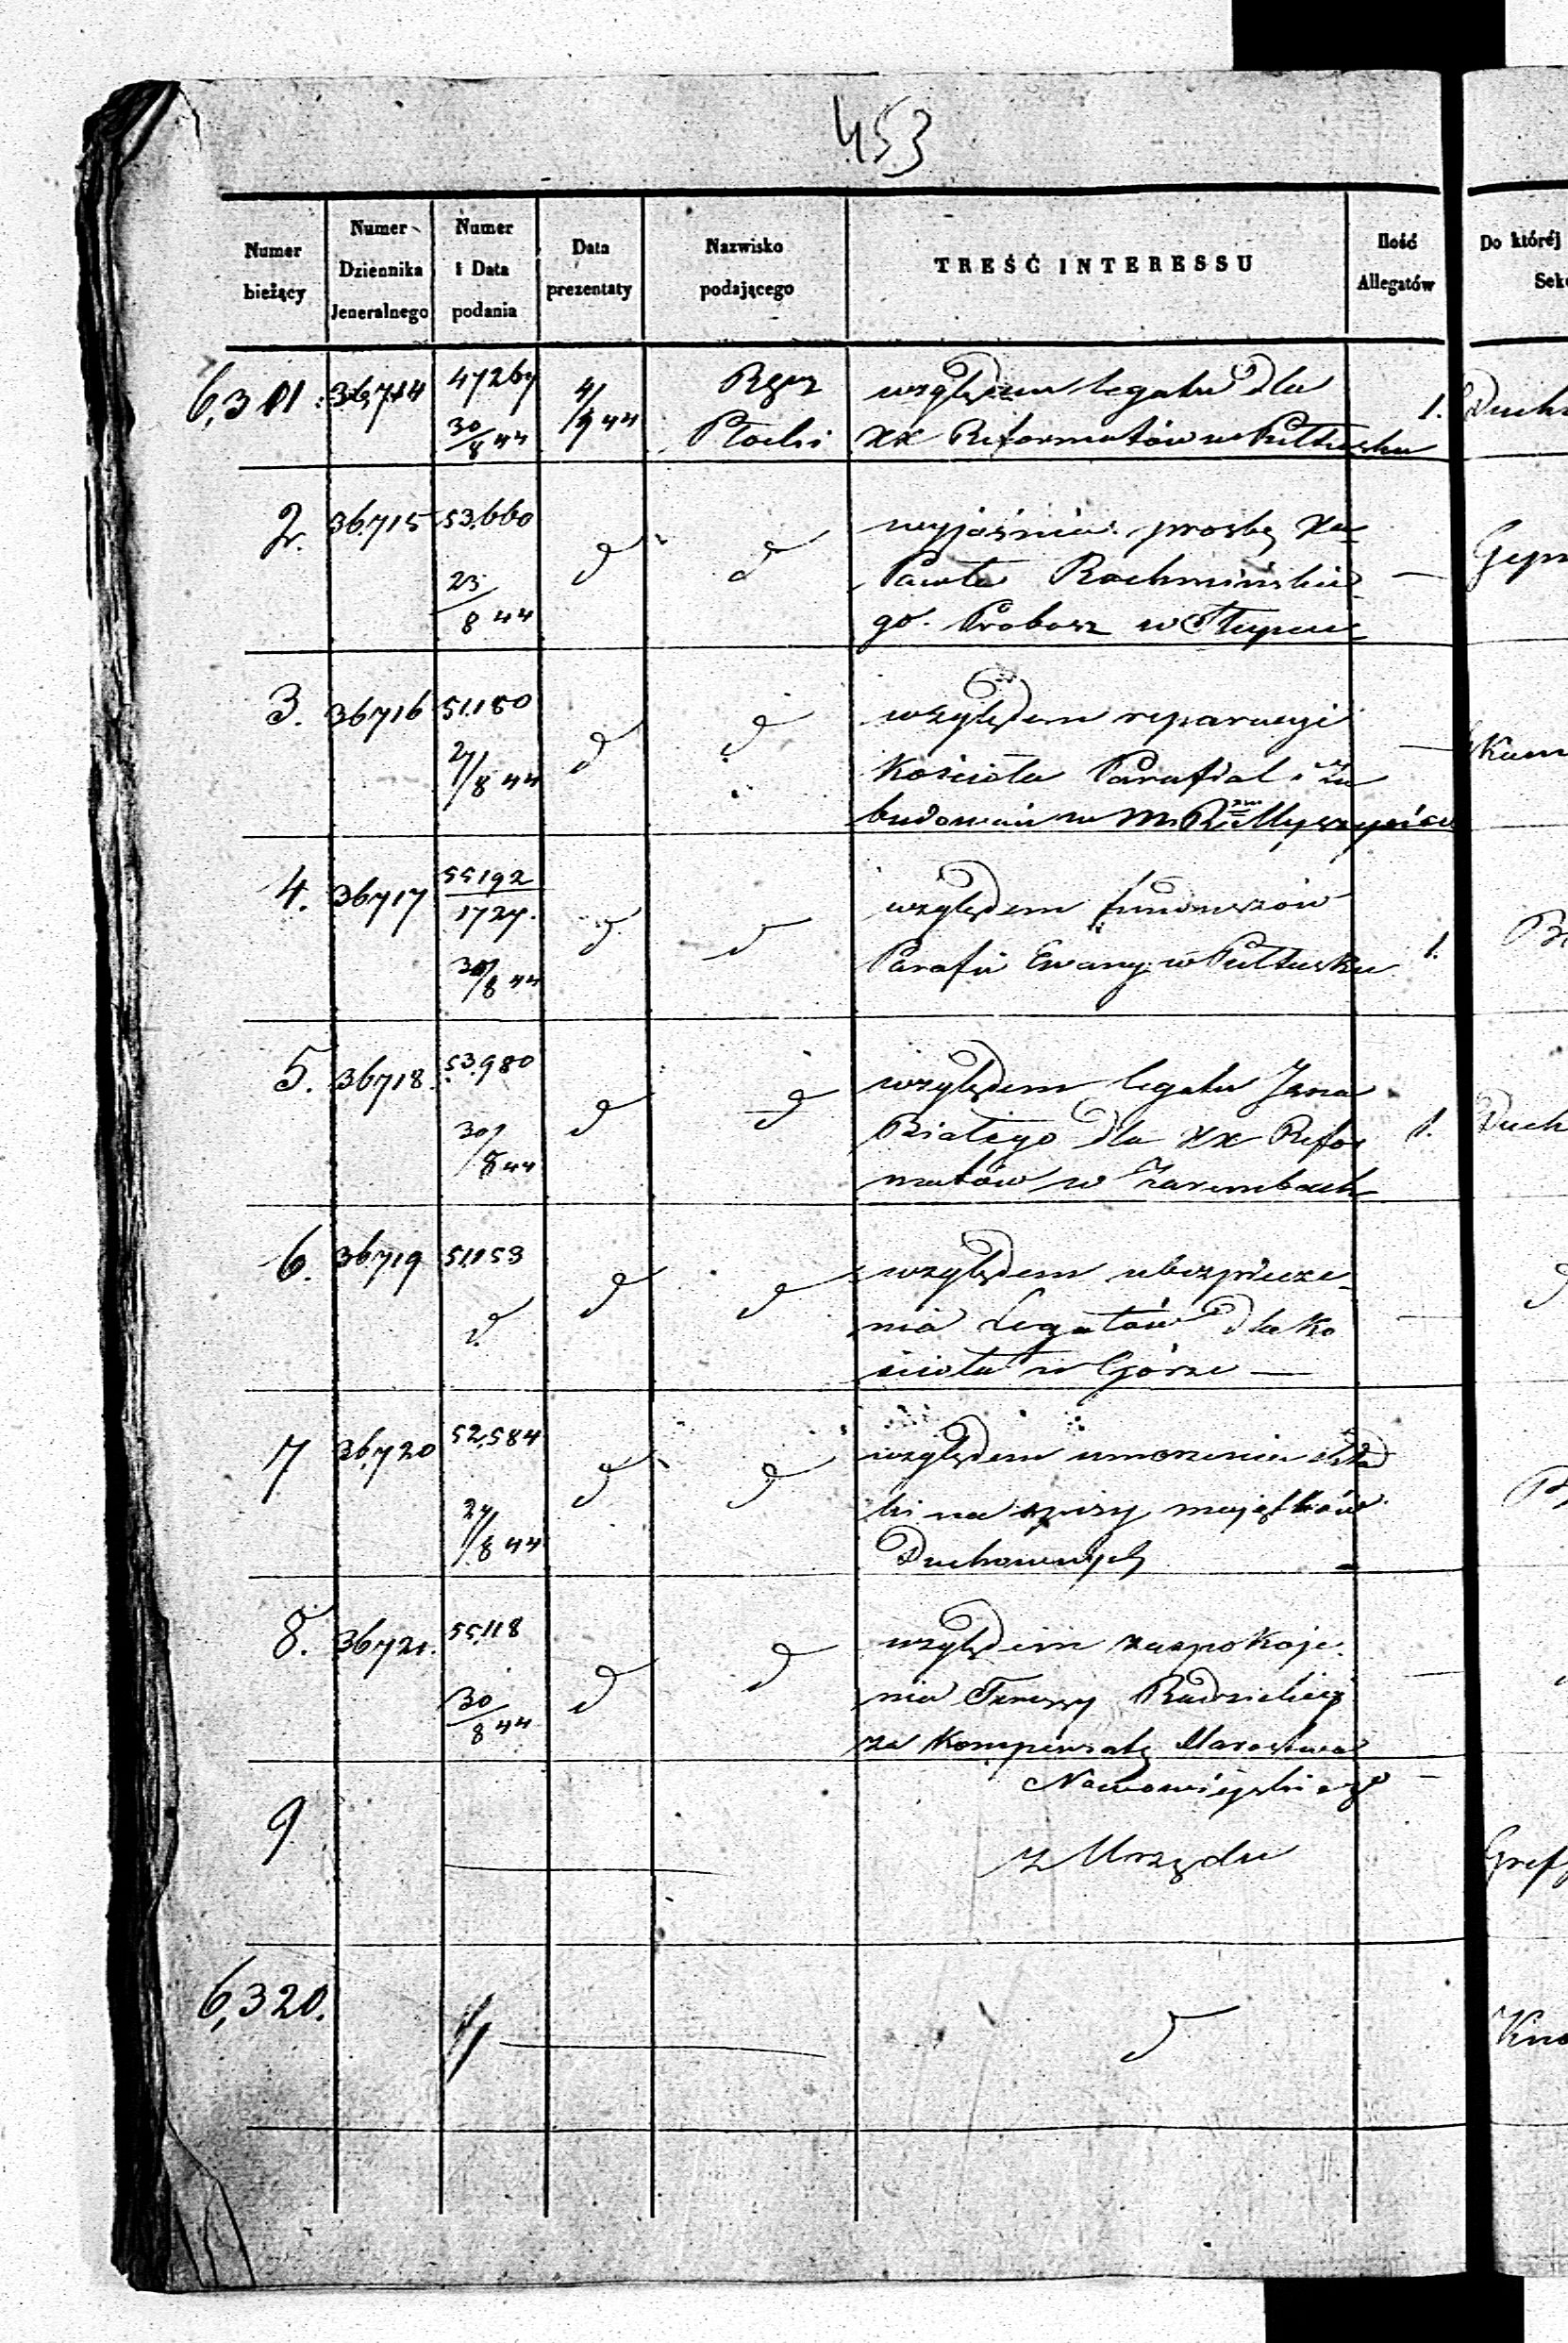 453
Numer bieżący
Numer Dziennika Jeneralnego
Numer i Data podania
Data prezentaty
Nazwisko podającego
TREŚĆ INTERESSU
Ilość Allegatów
Do któréj Sek
6,311. 36,714 47267 30/8 44 4/9 44 Rząz Płocki względem legatu dla 1.
XX Reformatów w Pułtusku
2. 36715 53.660 23/8 44 d d wyjaśnia. prosbę Xa —
Pawła Rochmińskie
go. Probosz w Słupnie
3. 36716 51.180 27/8 44 d d względem reparacyi —
Kościoła Parafial. i za
budowań w M.
4. 36717 55192/1727. 30/8 44 d d względem funduszów
Parafii Ewang. w Pułtusku 1.
5. 36718. 53.980 30/8 44 d d względem legatu Jana
Białego dla XX Refor 1.
matów w Zarembach
6. 36719 51.153 d d d względem ubezpiecze
nia Legatów dla Ko —
ścioła w Górze —
7 36,720 52,584 27/8 44 d d względem umorzenia
ki na spisy majątków
Duchownych
8. 36721. 55.118 30/8 44 d d względem zaspokoje
nia Teressy Radzickiej —
za Kompensatę Starostwa
Nowomiejskiego —
9 z Urzędu
6,320. d